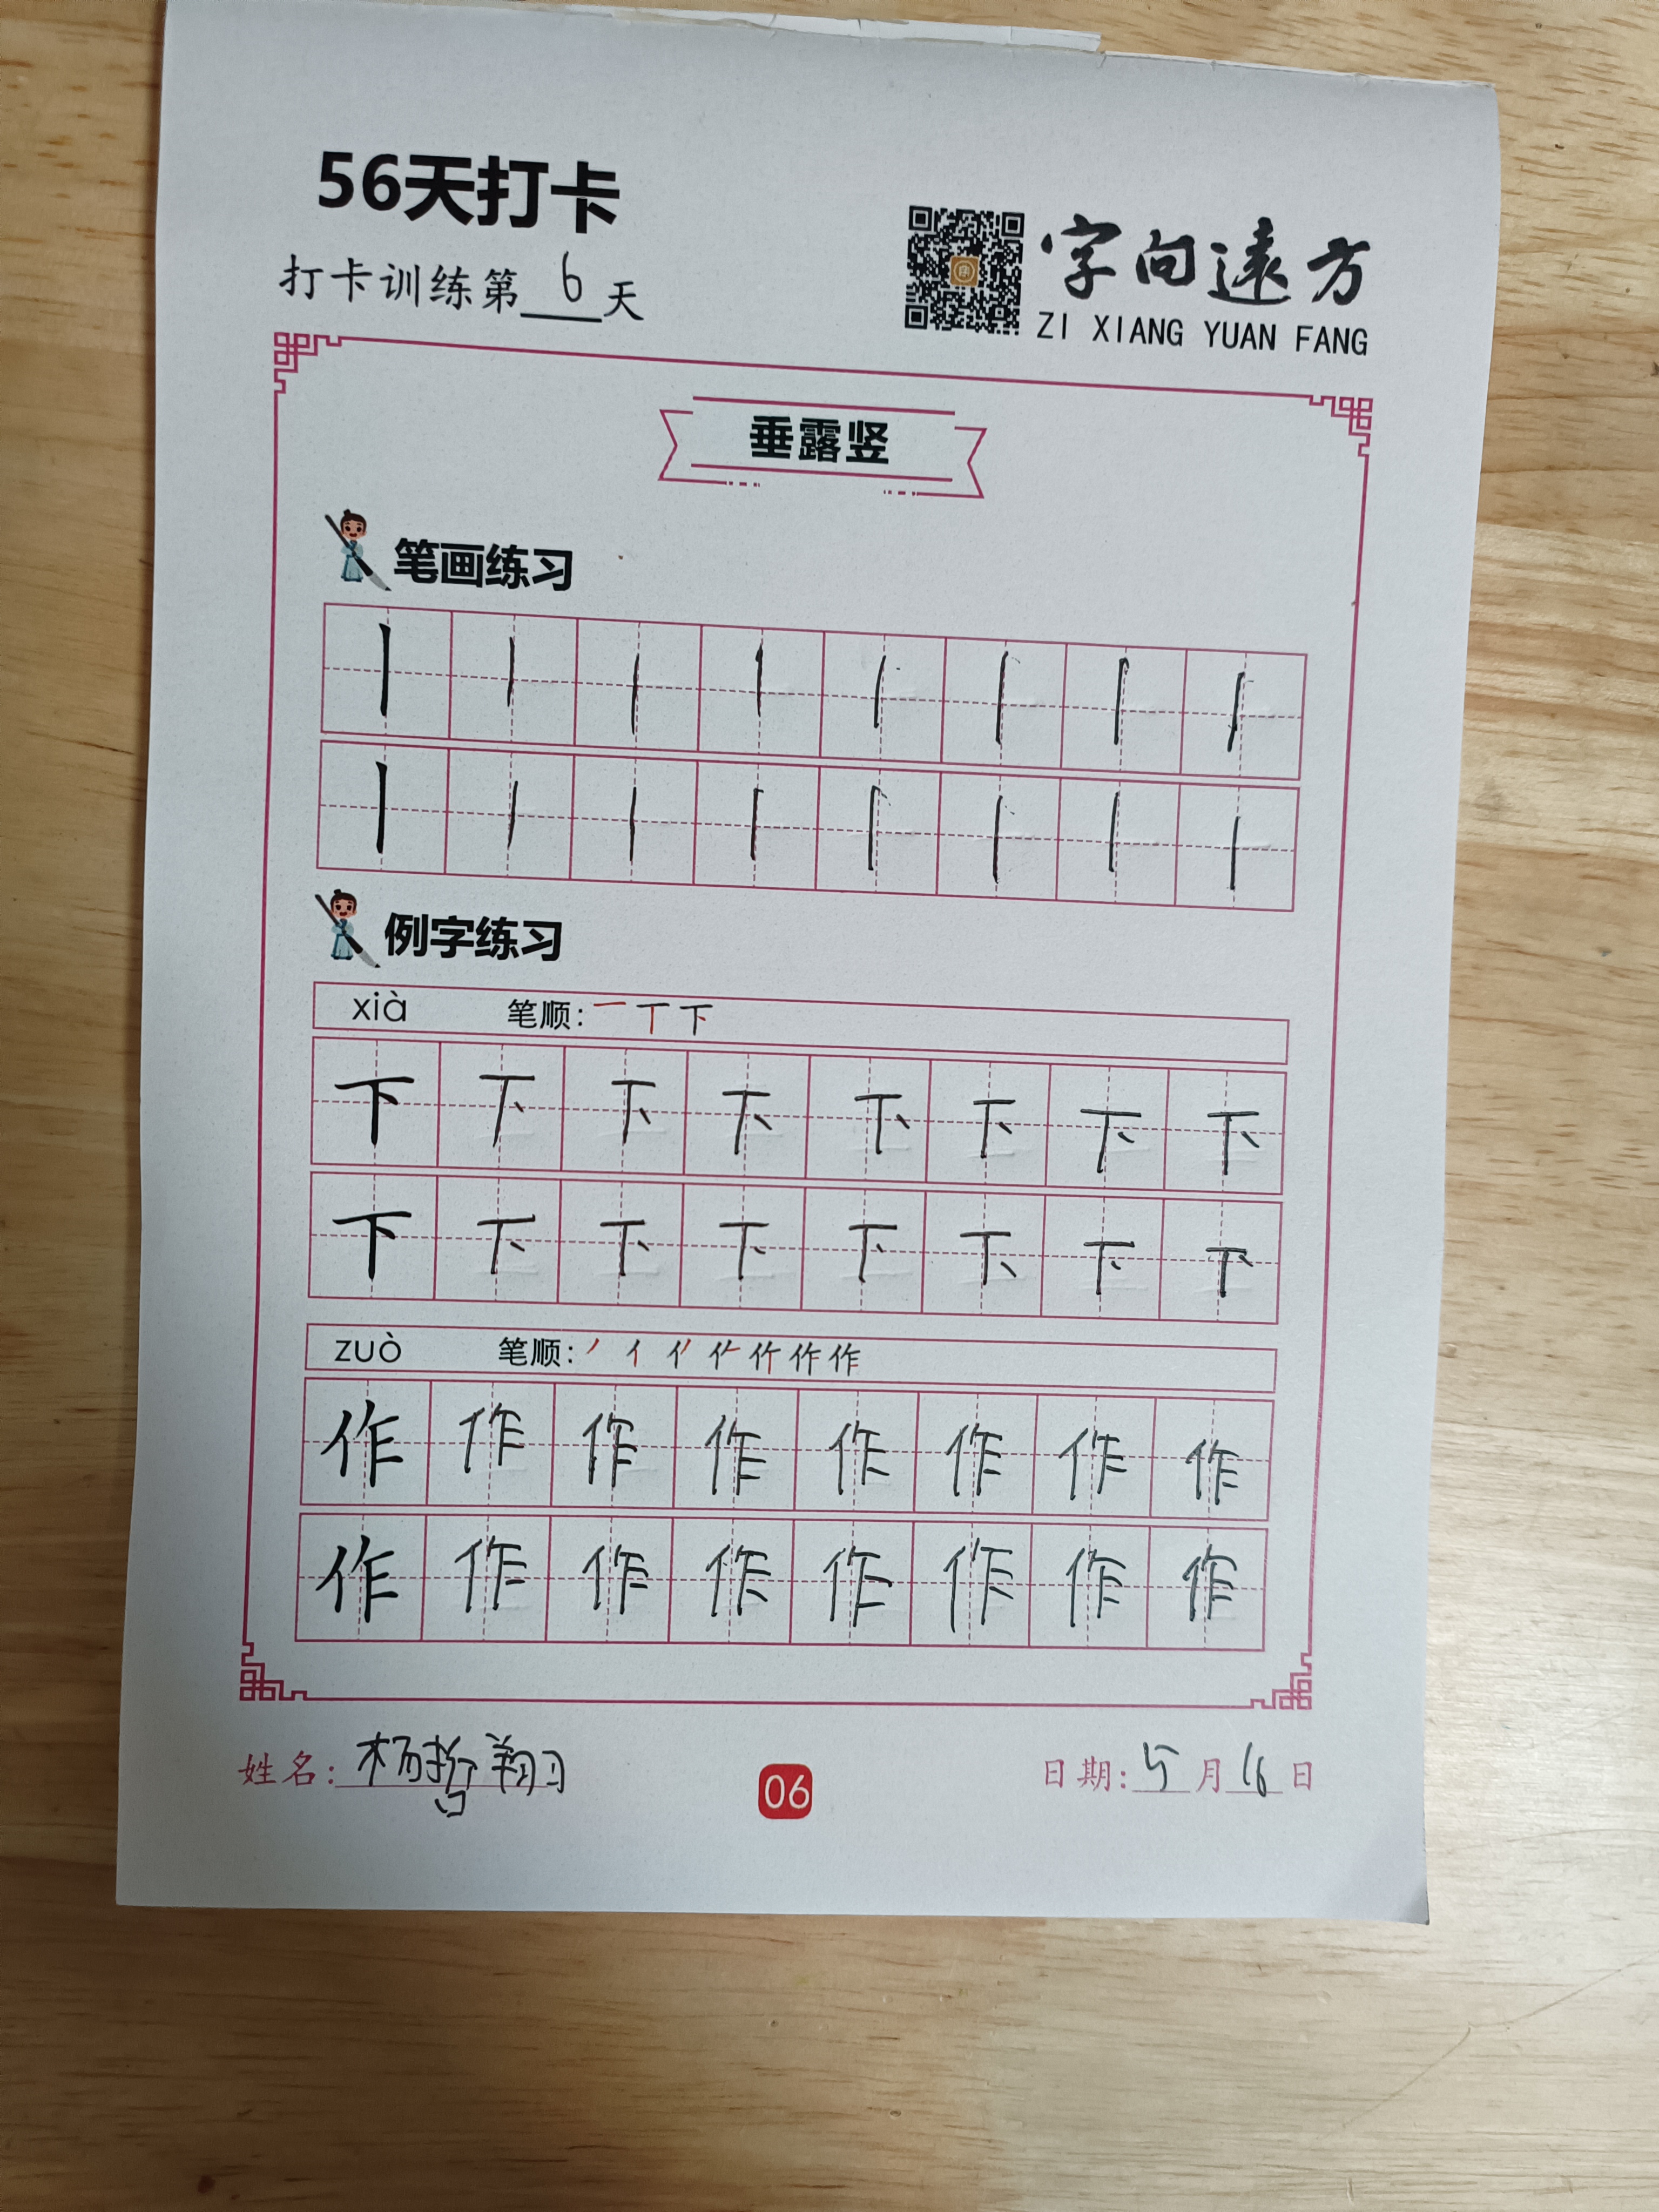 56天打卡
打卡训练第6天
字向遠方
ZI XIANG YUAN FANG
垂露竖
笔画练习
丨丨丨丨丨丨丨丨
丨丨丨丨丨丨丨丨
例字练习
xià 笔顺:一丅下
下下下下下下下下
下下下下下下下下
zuò 笔顺:
作作作作作作作作
作作作作作作作作
姓名:杨哲翔
06
日期:5月16日